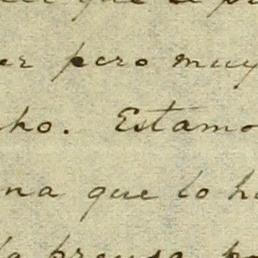 que a p
er pero muy
ho. Estamo
na que lo h
la prensa, po